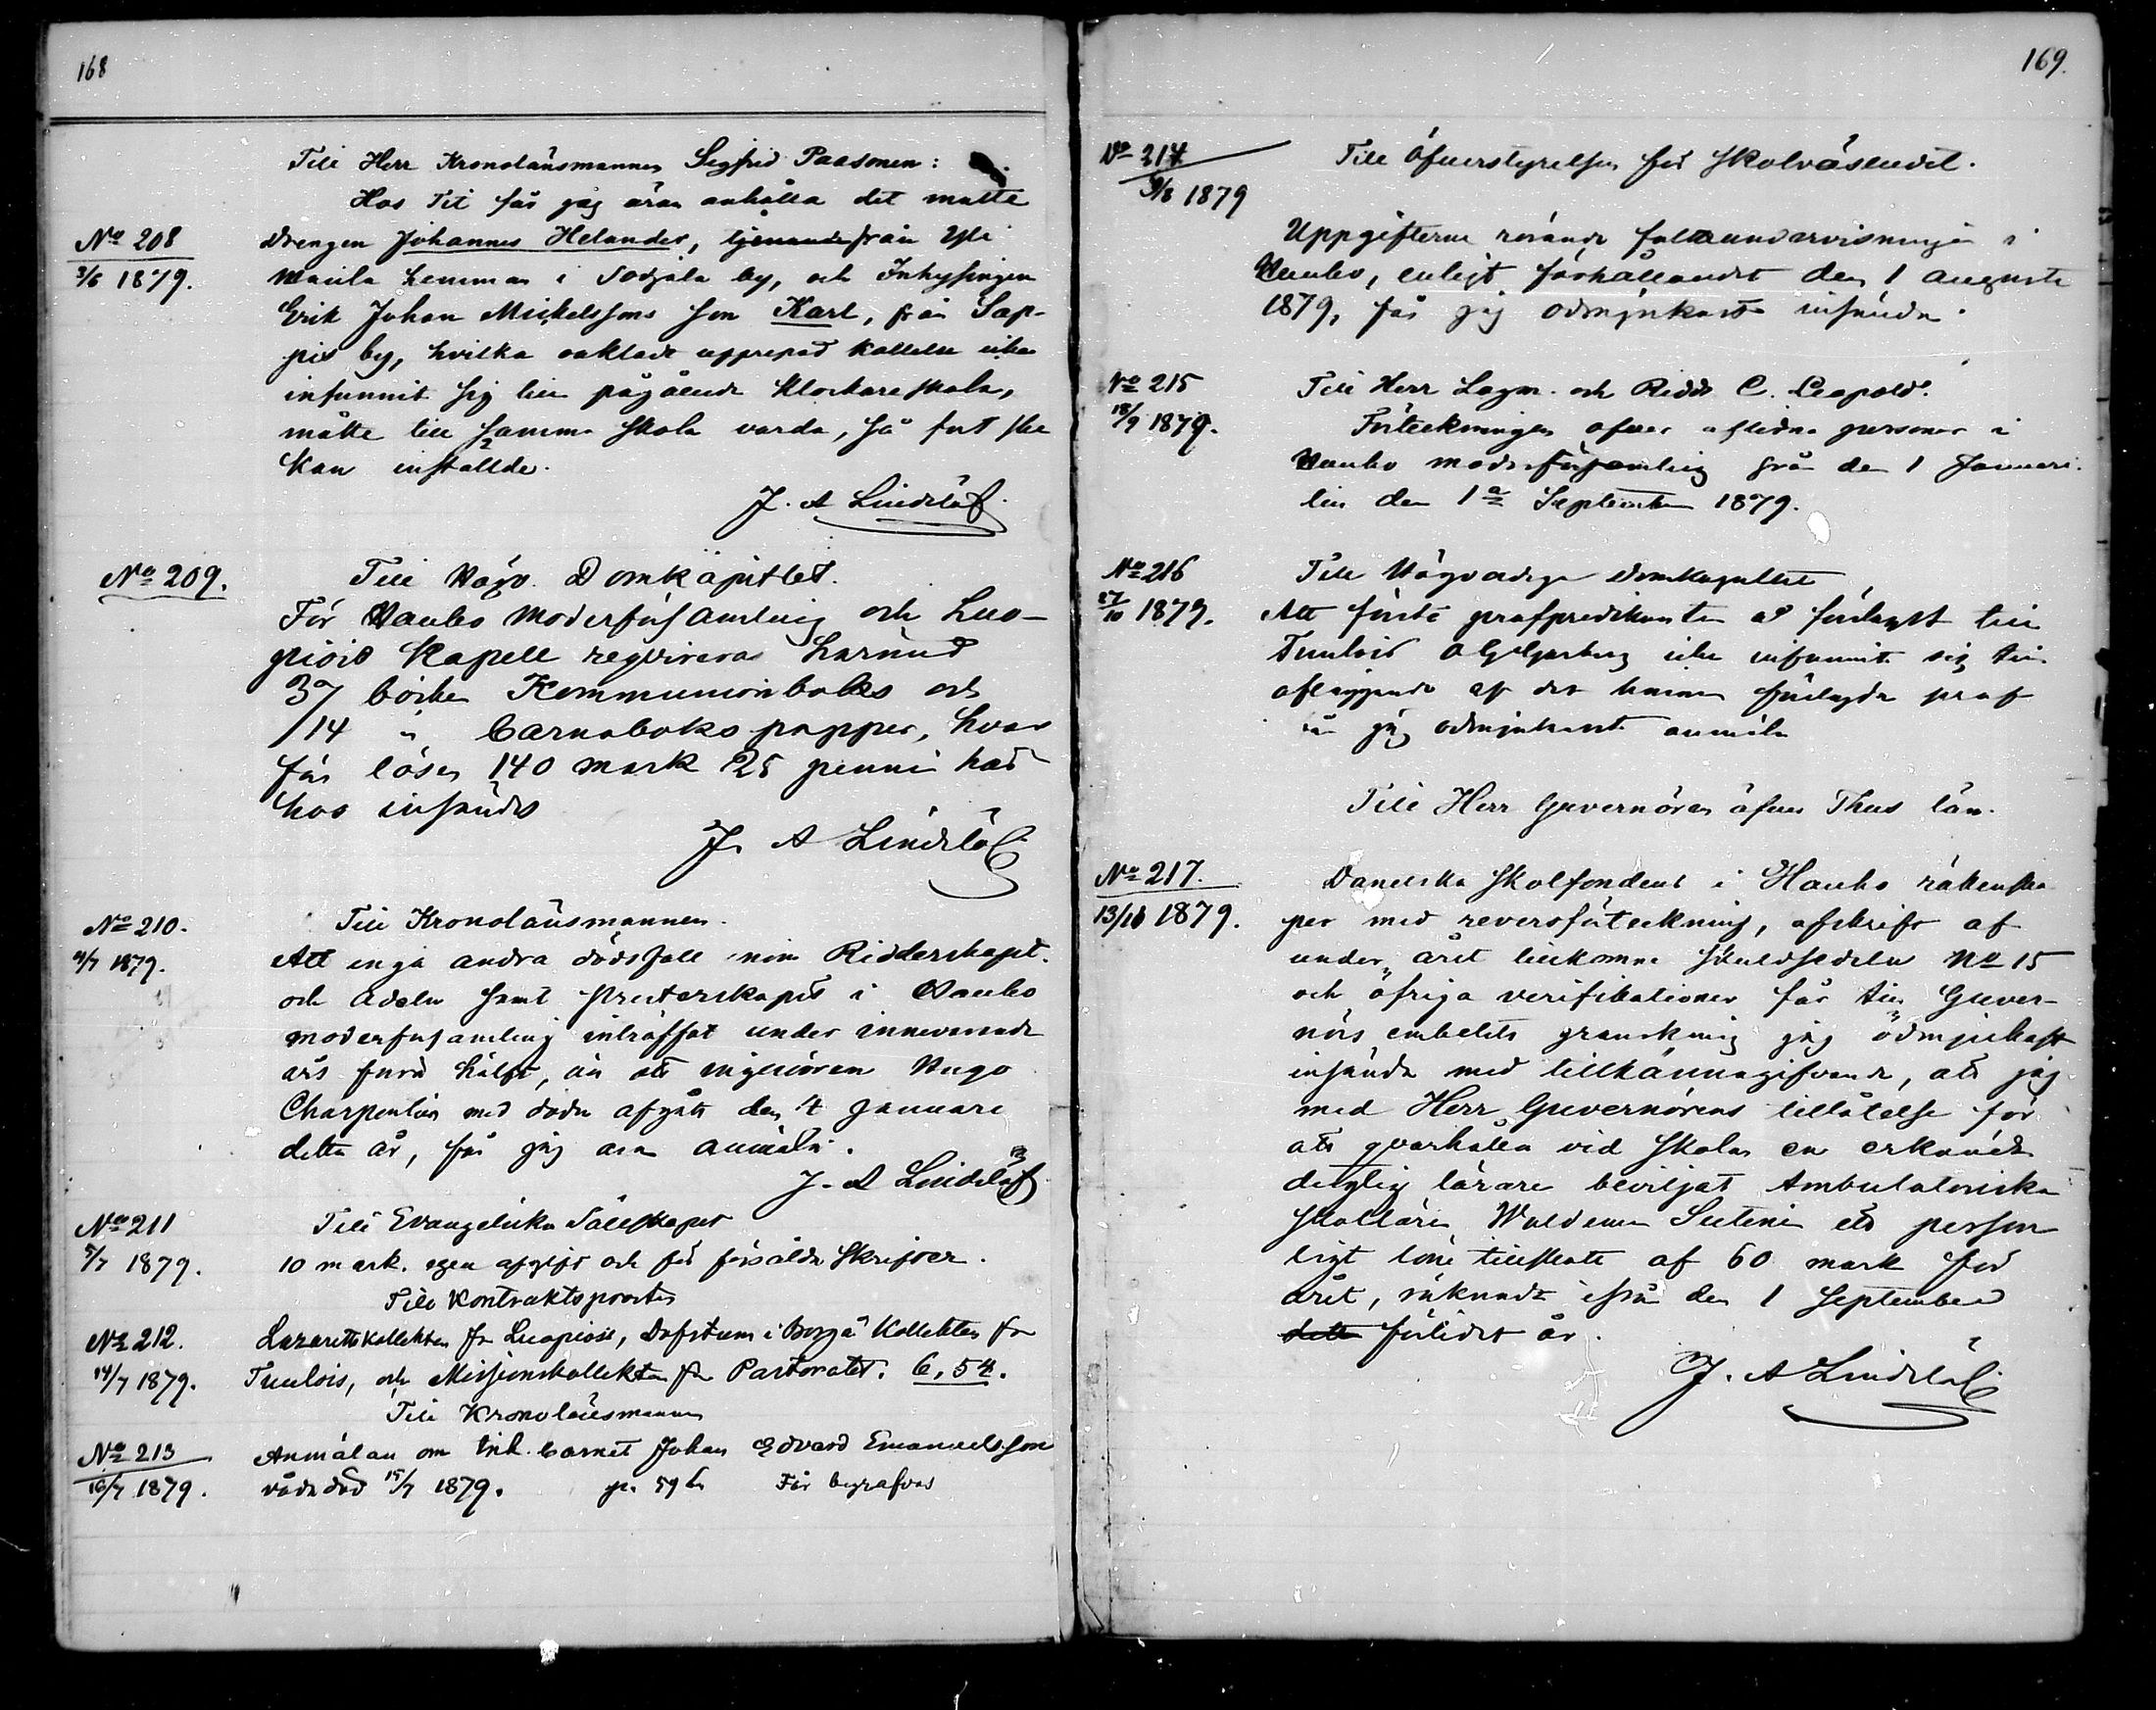 168
Till Herr Kronolänsmannen Sigfrid Paasonen:
Hos Tit får jag äran anhålla det måtte
No 208
drengen Johannes Helander, tjenande från Yli
3/6 1879.
Maula hemman i Sodjala by, och Inhysingen
Erik Johan Mickelssons son Karl, från Sap-
pis by, hvilka oaktadt upprepad kallelse icke
infunnit sig till pågående Klockareskola,
måtte till samma skola varda, så fort ske
kan inställde.
J. A Lindelöf.
No 209.
Till Högv. Domkapitlet.
För Hauho Moderförsamling och Luo-
piois Kapell reqvireras härmed
37 böcker Kommunionboks och
14 " barnaboks papper, hvar
för lösen 140 mark 25 penni här
hos insändes
J. A Lindelöf
No 210.
Till Kronolänsmannen.
4/7 1879.
Att inga andra dödsfall inom Ridderskapet.
och Adeln samt Presterskapet i Hauho
moderförsamling inträffat under innevarande
års förra hälft, än att ingeniören Hugo
Charpentier med döden afgått den 4 Januari
detta år, får jag äran anmäla.
J. A Lindelöf
No 211
Till Evangeliska Sällskapet
5/7 1879.
10 mark. egen afgift och för försålda Skrifter.
Till Kontraktsprosten
No 212.
Lazarettskollekten fr Luopiois, Döfstum i Borgå Kollekten fr
14/7 1879.
Tuulois, och Missionskollekten fr Pastoratet. 6,54.
Till Kronolänsmannen
No 213
Anmälan om Inh. barnet Johan Edvard Emanuelsson
16/7 1879.
våda död 15/7 1879. p. 596 Får begrafvas
169.
No 214
Till Öfverstyrelsen för Skolväsendet.
9/8 1879
Uppgifterna rörande folkundervisningen i
Hauho, enligt förhållandet den 1 augusti
1879, får jag ödmjukast insända.
No 215
Till Herr Lagm. och Ridd. C. Leopold.
18/9 1879.
Förteckningen öfver aflidna personer i
Hauho moderförsamling från den 1 Januari
till den 1a September 1879.
No 216
Till Högvördiga Domkapitlet
27/10 1879.
Att förste profpredikanten å förslaget till
Tuulois icke infunnit sig till
afläggande af det honom förelagda prof
får jag ödmjukast anmäla
Till Herr Guvernören öfver Thus län.
No 217.
Danelska Skolfondens i Hauho räkenska
13/10 1879.
per med reversförteckning, afskrift af
under året tillkomne skuldsedeln No 15
och öfriga verifikationer får till Guver-
nörs embetets granskning jag ödmjukast
insända med tillkännagifvande, att jag
med Herr Guvernörens tillåtelse för
att qvarhålla vid skolan en erkändt
duglig lärare beviljat Ambulatoriska
skollärn Waldemar Suteni ett person
ligt löne tillskott af 60 mark för
året, räknadt ifrån den 1 September
detta förlidet år.
J. A Lindelöf